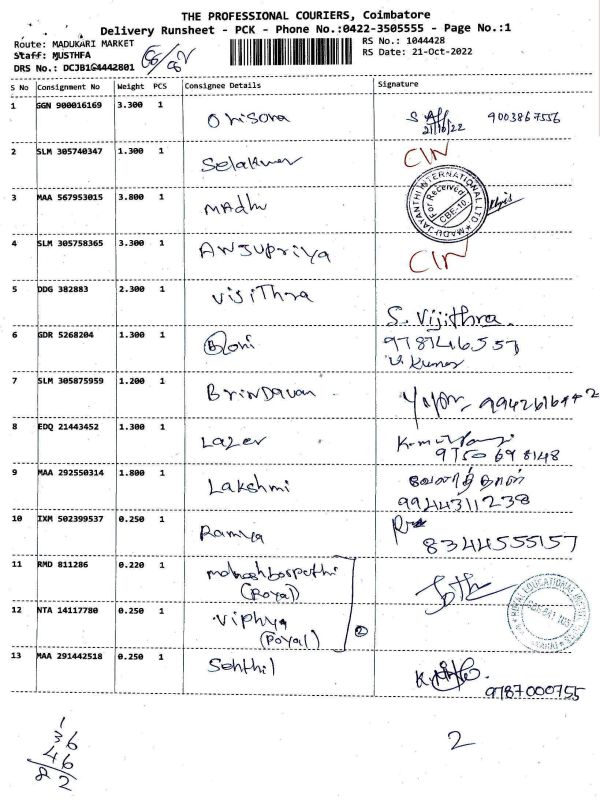 THE PROFESSIONAL COURIERS, Coimbatore
Delivery Runsheet - PCK - Phone No.:0422-3505555 - Page No.:1
Route: MADUKARI MARKET
Staff: MUSTHFA
RS No.: 1044428
RS Date: 21-Oct-2022
S No Consignment No Weight PCS Consignee Details Signature
1 GGN 900016169 3.300 1 Orisona 21/10/22 9003867556
2 SLM 305740347 1.300 1 Selakumar CIN
3 MAA 567953015 3.800 1 Madhu
MADU JAYANTHI INTERNATIONAL LTD
For Received
CBE-10
4 SLM 305758365 3.300 1 Anjupriya CIN
5 DDG 382883 2.300 1 Vijithra S. Vijithra
6 GDR 5268204 1.300 1 978746557
V. Kumar
7 SLM 305875959 1.200 1 Brindavan
8 EDQ 21443452 1.300 1 Lazer
9750698148
9 MAA 292550314 1.800 1 Lakshmi
9944311238
10 IXM 502399537 0.250 1 Ramiya
8344555157
11 RMD 811286 0.220 1
(Royal)
12 NTA 14117780 0.250 1 Viphya
(Royal) 2
13 MAA 291442518 0.250 1 Senthil
9787000755
1
36
46
82
2